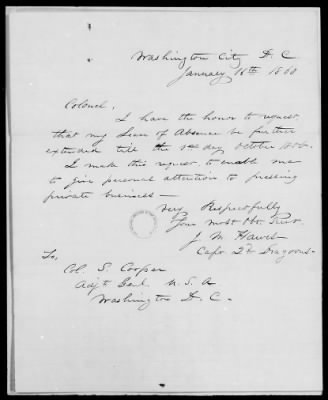 Washington City D. C.
January 18th 1860
Colonel,
I have the honor to request
that my Leave of Absence be further
extended till the 3rd day October
I make this request, to enable me
to give personal attention to pressing
private business—
Very Respectfully
Your most Obt. Servt.
J. M. Hawes
Capt. 2d Dragoons—
To,
Col. S. Cooper
Adjt Genl. U. S. A
Washington D. C.